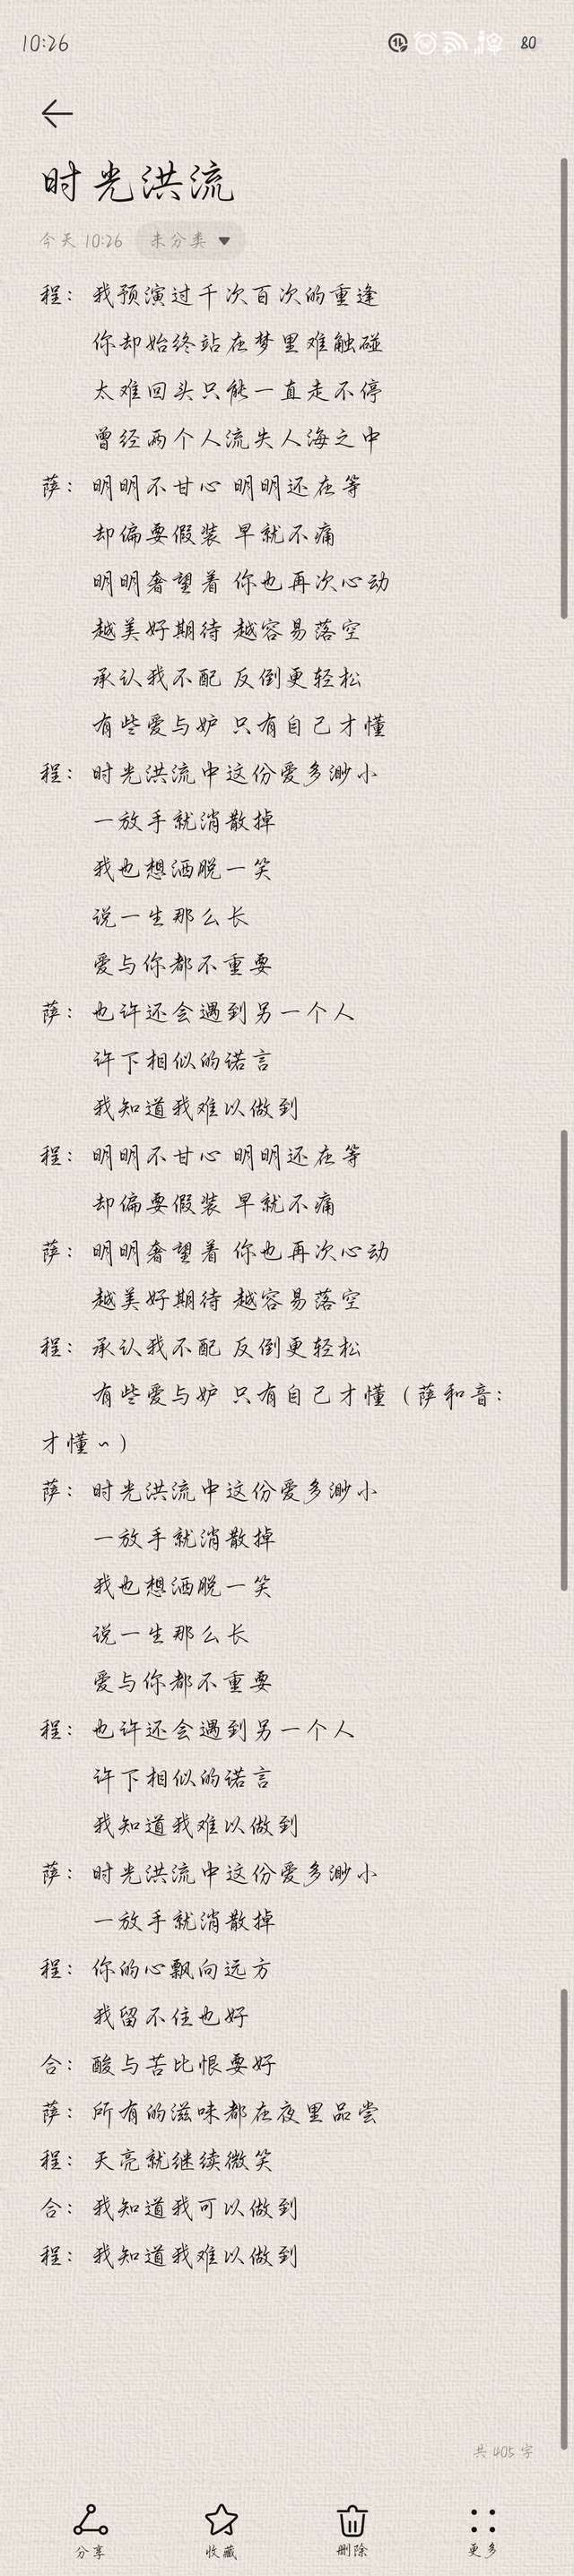 10:26
80
时光洪流
今天 10:26 未分类
程：我预演过千次百次的重逢
你却始终站在梦里难触碰
太难回头只能一直走不停
曾经两个人流失人海之中
萨：明明不甘心 明明还在等
却偏要假装 早就不痛
明明奢望着 你也再次心动
越美好期待 越容易落空
承认我不配 反倒更轻松
有些爱与妒 只有自己才懂
程：时光洪流中这份爱多渺小
一放手就消散掉
我也想洒脱一笑
说一生那么长
爱与你都不重要
萨：也许还会遇到另一个人
许下相似的诺言
我知道我难以做到
程：明明不甘心 明明还在等
却偏要假装 早就不痛
萨：明明奢望着 你也再次心动
越美好期待 越容易落空
程：承认我不配 反倒更轻松
有些爱与妒 只有自己才懂（萨和音：
才懂~）
萨：时光洪流中这份爱多渺小
一放手就消散掉
我也想洒脱一笑
说一生那么长
爱与你都不重要
程：也许还会遇到另一个人
许下相似的诺言
我知道我难以做到
萨：时光洪流中这份爱多渺小
一放手就消散掉
程：你的心飘向远方
我留不住也好
合：酸与苦比恨要好
萨：所有的滋味都在夜里品尝
程：天亮就继续微笑
合：我知道我可以做到
程：我知道我难以做到
共 405 字
分享 收藏 删除 更多